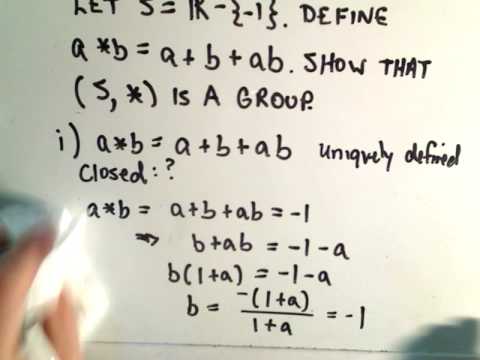 LET S = ℝ - {-1}. DEFINE
a * b = a + b + ab. SHOW THAT
(S, *) IS A GROUP.
i) a * b = a + b + ab uniquely defined
Closed: ?
a * b = a + b + ab = -1
⇒ b + ab = -1 - a
b(1+a) = -1 - a
b = -(1+a)/1+a = -1